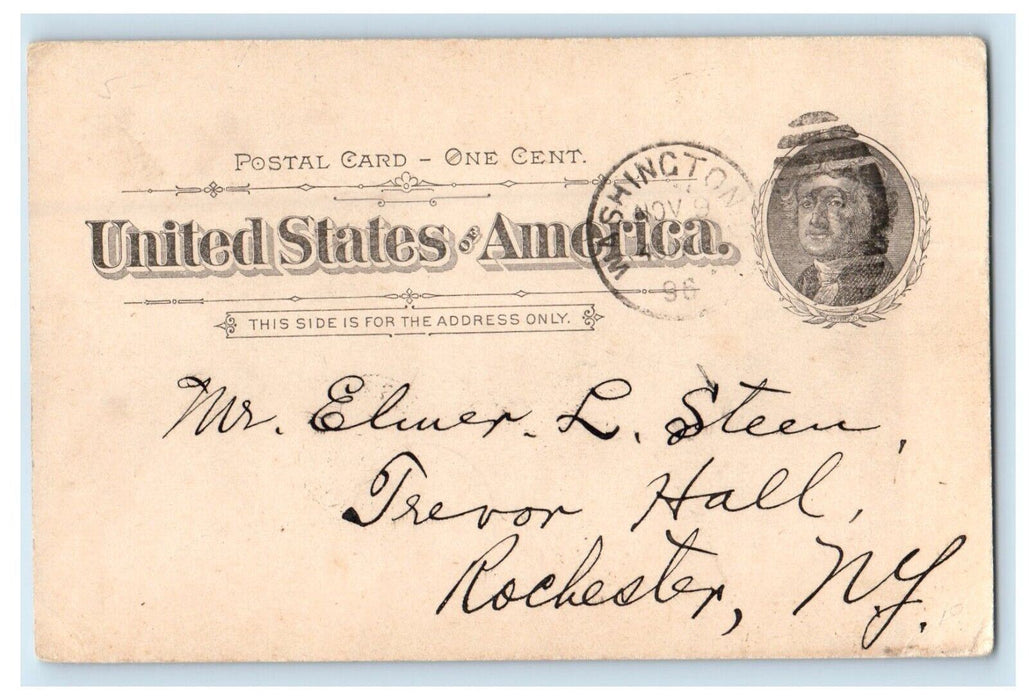 POSTAL CARD – ONE CENT.
United States of America.
THIS SIDE IS FOR THE ADDRESS ONLY.
WASHINGTON
NOV 9
96
Mr. Elmer L. Steen,
Trevor Hall,
Rochester, N.Y.